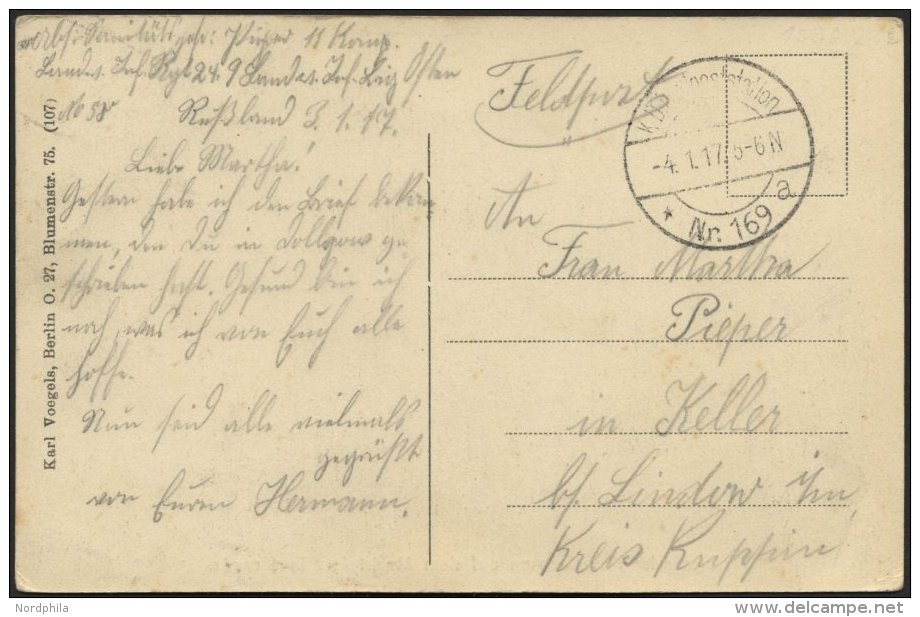 Abs: Sanitätsgefr: Pieper 11 Komp.
Landst. Inf. Rgt 24. 9 Landst. Inf. Brig Osten
No 58 Rußland 3. 1. 17.
Liebe Martha!
Gestern habe ich den Brief bekom
men, den Du in Dollgow ge
schrieben hast. Gesund bin ich
noch, was ich von Euch alle
hoffe.
Nun seid alle vielmals
gegrüßt
von Euren Hermann.
Karl Voegels, Berlin O. 27, Blumenstr. 75. (107)
Feldpost
-4.1.17. 5-6N
* Nr. 169 a
An
Frau Martha
Pieper
in Keller
b/ Lindow i/m
Kreis Ruppin
Nordphila
delcampe.net